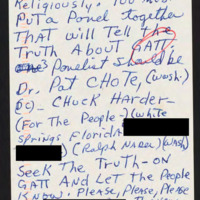 Religiously. You must
Put a Panel together
THAT will Tell the
Truth About GATT.
Panelist should be
Dr. Pat CHOTE, (Wash.
DC) - CHUCK Harder-
(For The People-) (White
Springs, Florida
(Ralph Nader) (Wash)
Seek The Truth-on
GATT And Let the People
Know. Please, Please, Please